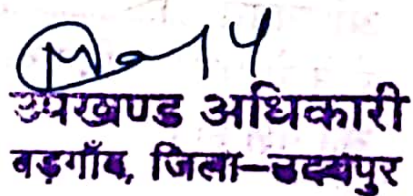 उपखण्ड अधिकारी
बड़गाँव, जिला-उदयपुर